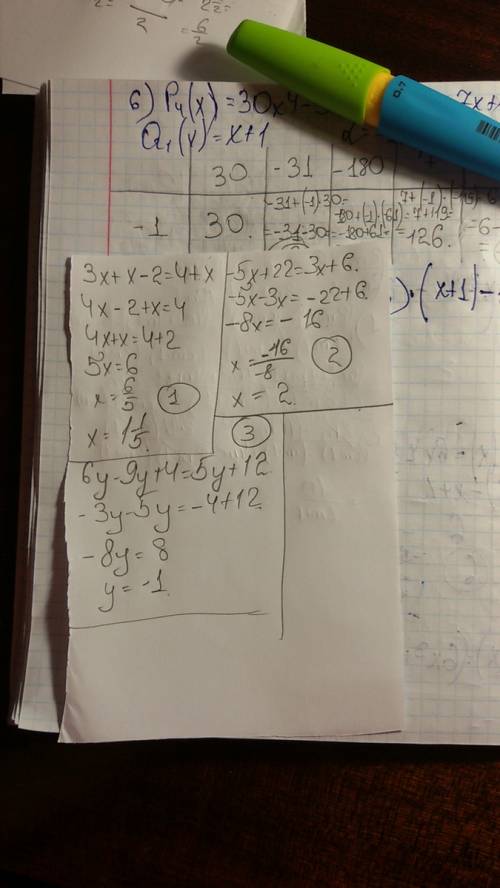 6) P₄(x) = 30x4 -
7x+
Q₁(x) = x+1
30
-31
-180
-1
30.
-31+(-1)·30=
=-31-30=
-180+(-1)·(-61)=
=-180+61=
=7+119=
=126.
-6-
)·(x+1)-
3x+x-2=4+x
4x-2+x=4
4x+x=4+2
5x=6
x=6/5
1
x=1 1/5.
-5x+22=3x+6.
-5x-3x=-22+6.
-8x=-16
x=-16/-8
2
x=2.
3
6y-9y+4=5y+12
-3y-5y=-4+12
-8y=8
y=-1.
=6/2
0,7